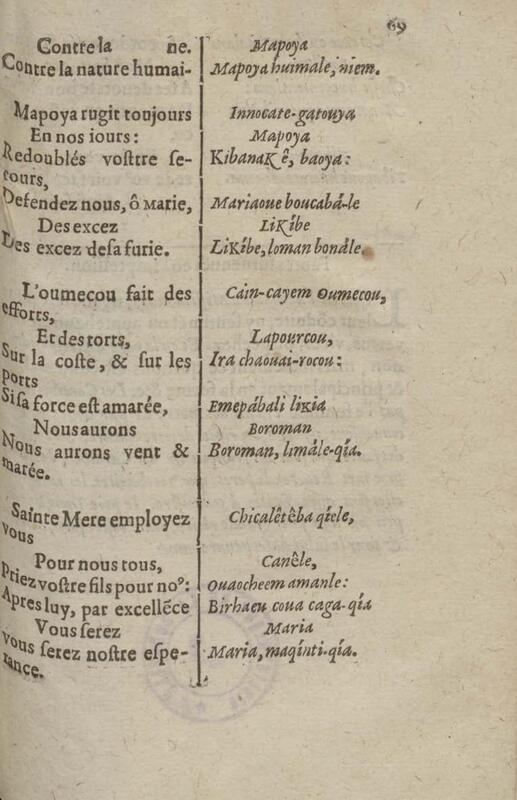 69
Contre la ne.
Contre la nature humai-
Mapoya rugit toujours
En nos iours:
Redoublés vostrre se-
cours,
Defendez nous, ô Marie,
Des excez
Des excez desa furie.
L'oumecou fait des
efforts,
Et des torts,
Sur la coste, & sur les
ports
Si sa force est amarée,
Nous aurons
Nous aurons vent &
marée.
Sainte Mere employez
vous
Pour nous tous,
Priez vostre fils pour noꝰ:
Apres luy, par excellẽce
Vous serez
vous serez nostre espe-
rance.
Mapoya
Mapoya huimale, niem.
Innocate-gatouya
Mapoya
KibanaKê, baoya:
Mariaoue boucabá-le
LiKíbe
LiKíbe, loman bonále.
Cain-cayem oumecou,
Lapourcou,
Ira chaouai-rocou:
Emepábali likia
Boroman
Boroman, limále-qía.
Chicalêtêba qiele,
Canêle,
Ouaocheem amanle:
Birhaeu coua caga-qía
Maria
Maria, maqínti-qía.